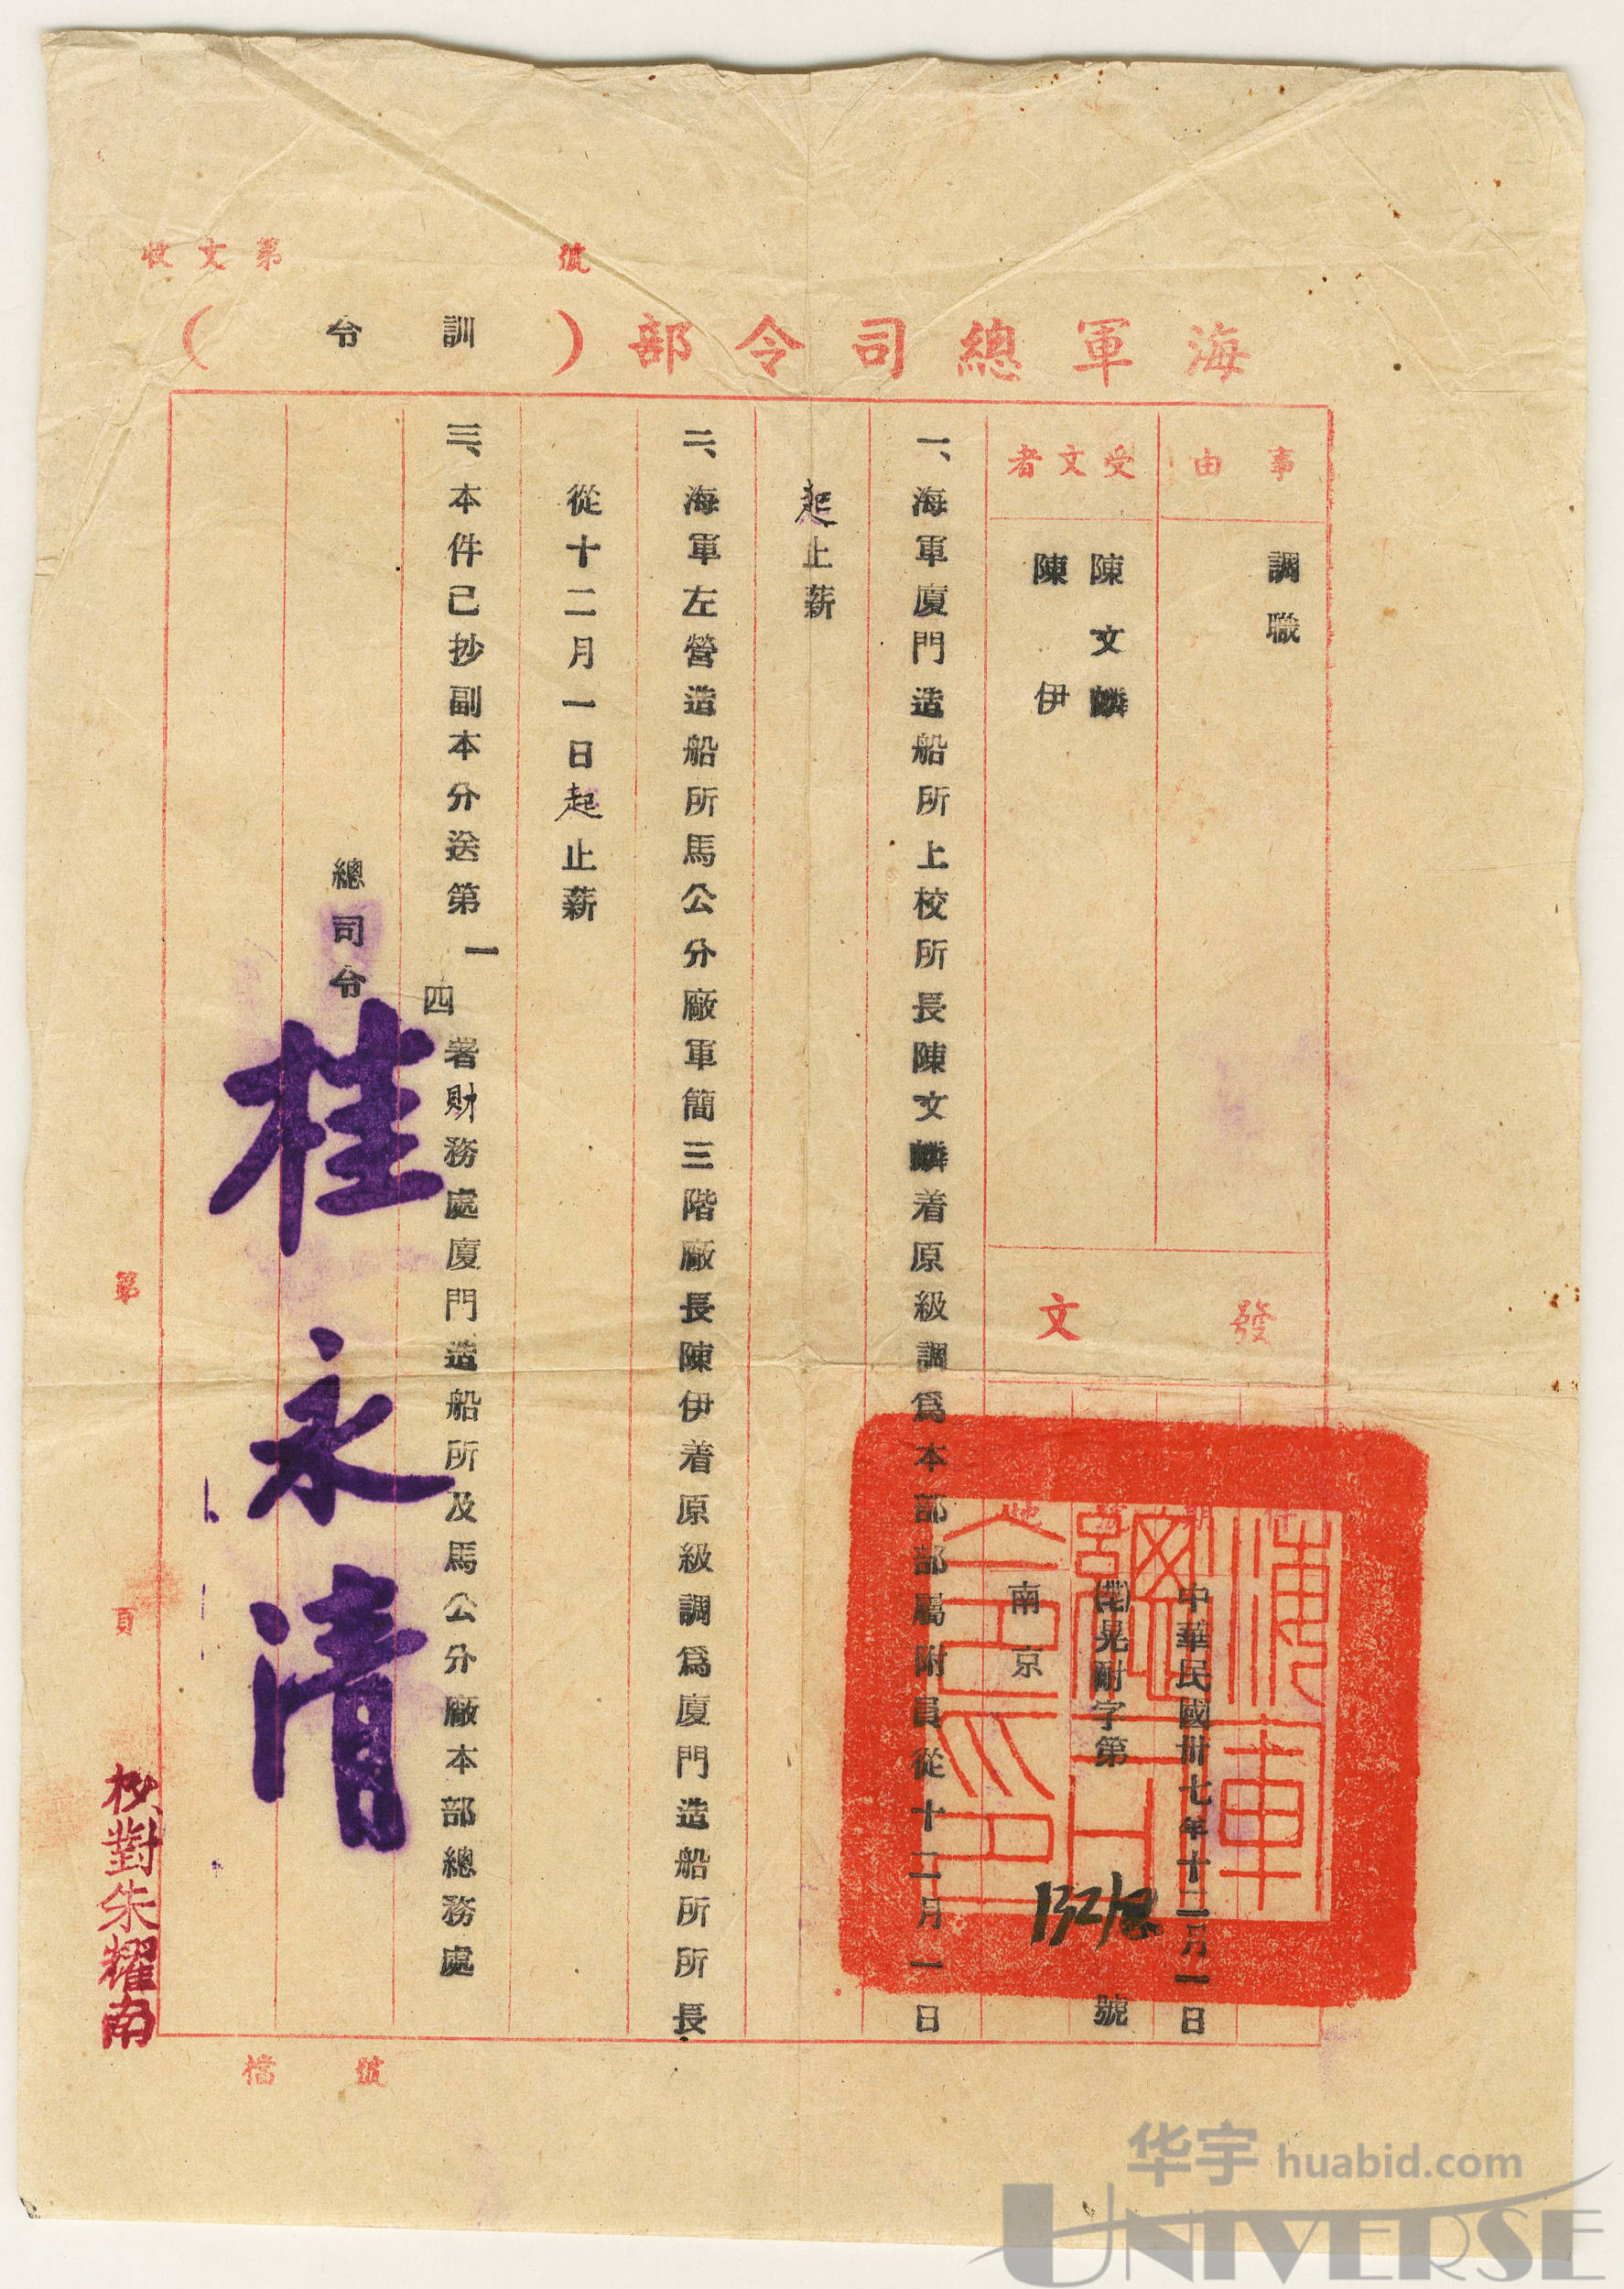 收文第 號
海軍總司令部（訓令）
事由
調職
受文者
陳文麟
陳伊
發文
中華民國卅七年十二月一日
晃耐字第 號
南京
一、海軍廈門造船所上校所長陳文麟着原級調爲本部部屬附員從十二月一日
起止薪
二、海軍左營造船所馬公分廠軍簡三階廠長陳伊着原級調爲廈門造船所所長
從十二月一日起止薪
三、本件已抄副本分送第一四署財務處廈門造船所及馬公分廠本部總務處
總司令
桂永清
第 頁
校對朱耀南
檔 號
华宇 huabid.com
UNIVERSE